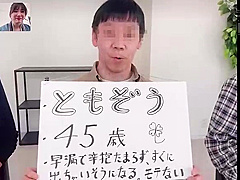 ともぞう
・45歳
・早漏で辛抱たまらず、すぐに
出ちゃいそうになる。モテない